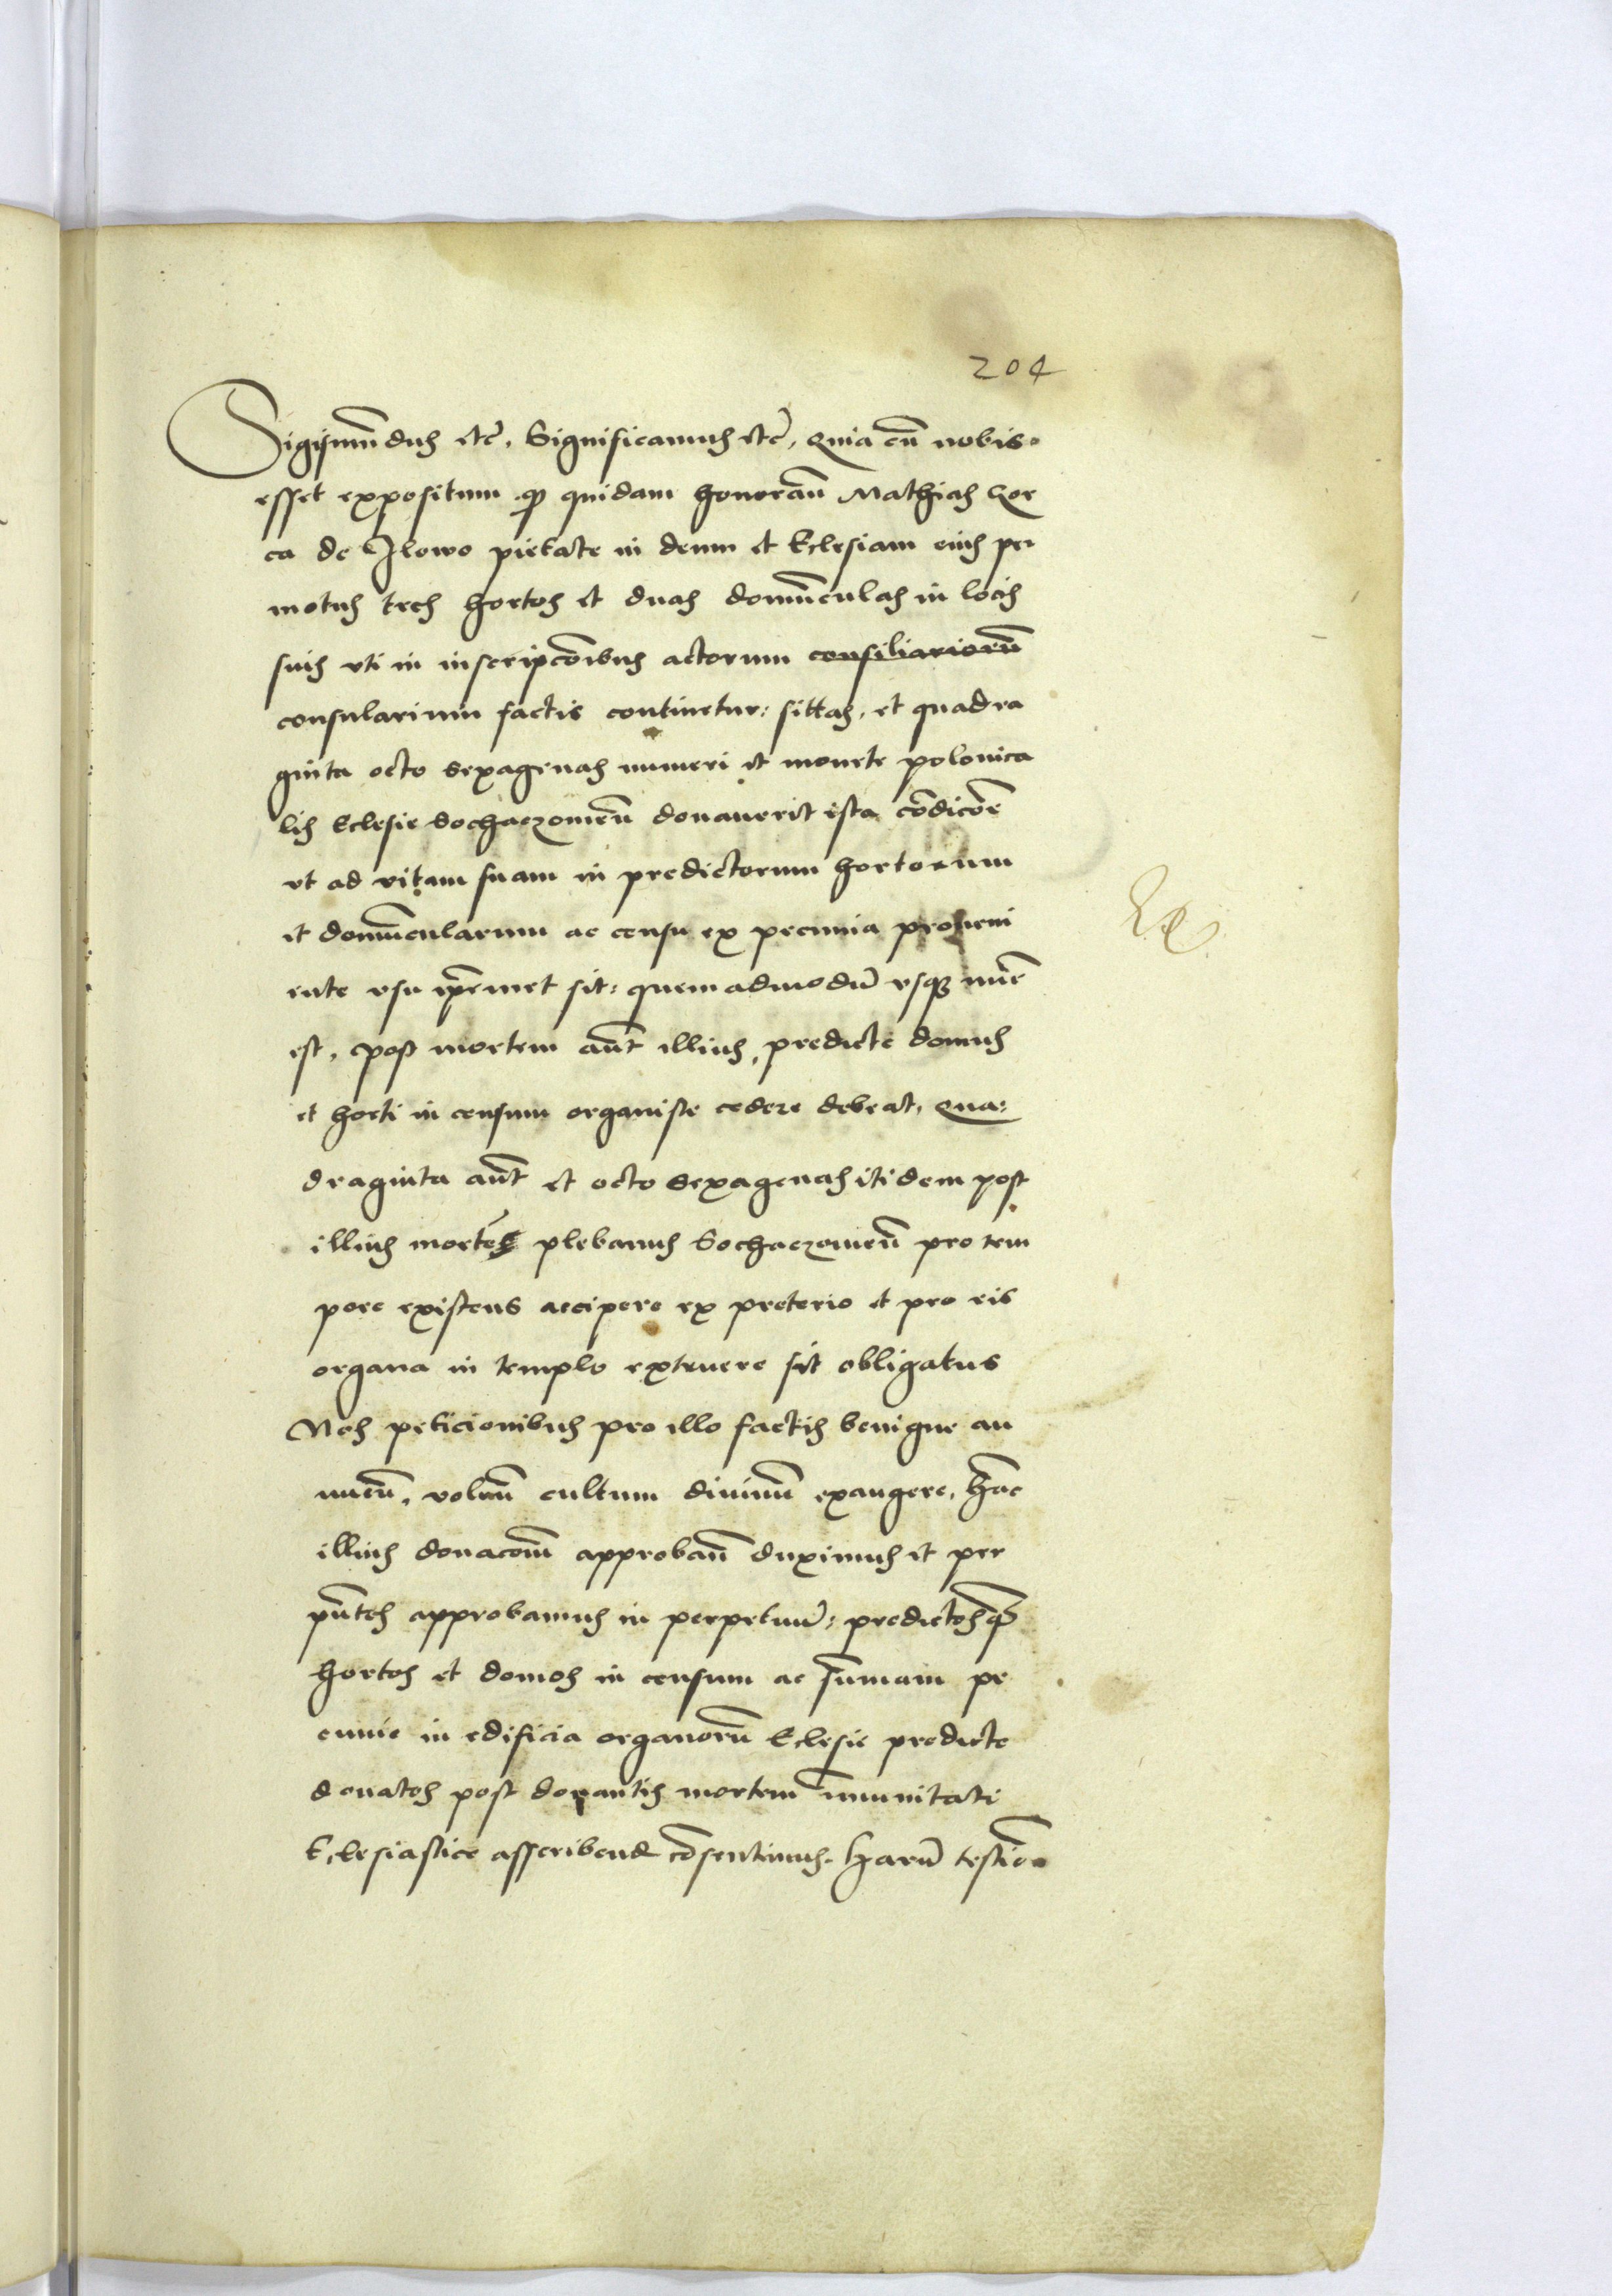 204
Sigismūdus etc̄. Significamus etc̄, Quia cū nobis
esset expositum q̄ quidam honoran̄ Mathias Kor
ca de Ilowo pietate in deum et Eclesiam eius per
motus tres hortos et duas domūculas in locis
suis vti in inscripcōnibus actorum consiliariorū
consularium factis continetur: sittas, et quadra
ginta octo sexagenas numeri et monete polonica
lis Eclesie Sochaczowieñ donauerit ista cōdicōe
vt ad vitam suam in predictorum hortorum
et domūcularum ac censu ex pecunia proueni
ente vsu ip̄emet sit: quemadmodū vsq nūc
est, post mortem aūt illius, predicte domus
et horti in censum organiste cedere debeat, Qua-
draginta aūt et octo sexagenas itidem post
illius mortē plebanus Sochaczowieñ pro tem
pore existens accipere ex pretorio et pro eis
organa in templo extruere sit obligatus
Nos peticionibus pro illo factis benigne an
nueñ, volen̄ cultum diuinū exaugere, hāc
illius donacōem approban̄ duximus et per
p̄ntes approbamus in perpetuū: predictosq
hortos et domos in censum ac sūmam pe
cunie in edificia organorū Eclesie predicte
donatos post donantis mortem īmunitati
Eclesiastice asscribend cōsentimus. Harū testīo